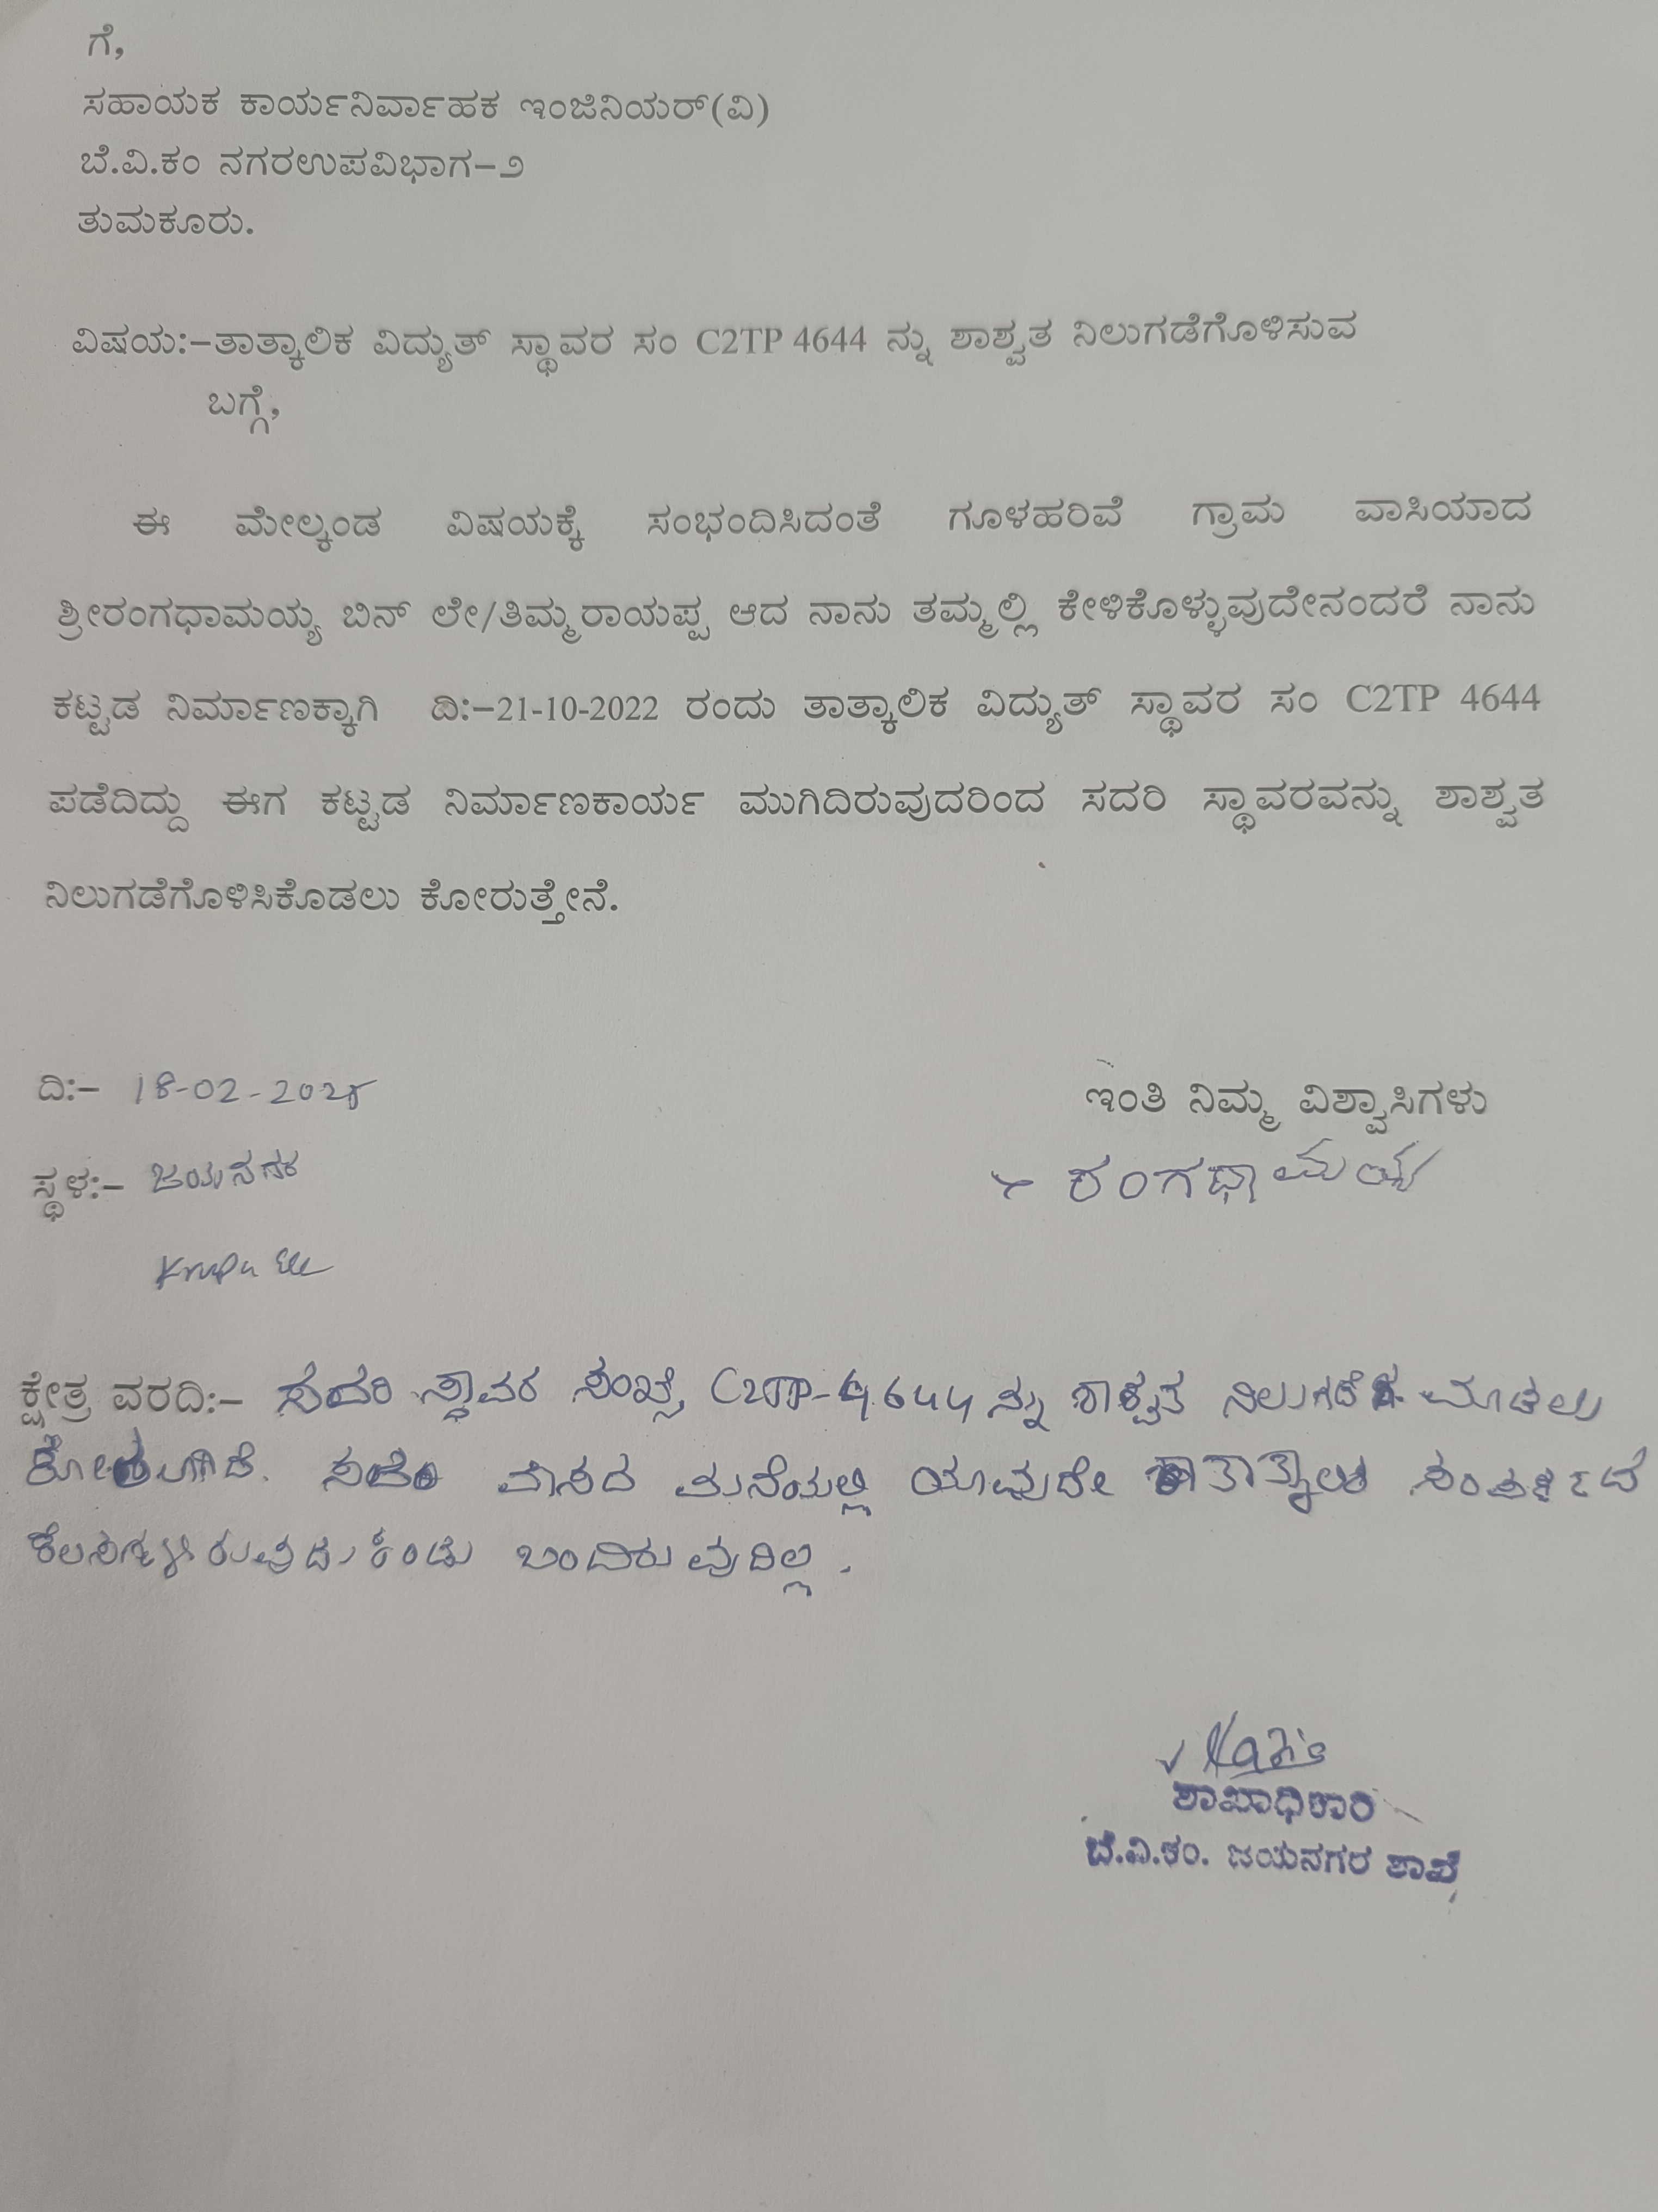 ಗೆ,
ಸಹಾಯಕ ಕಾರ್ಯನಿರ್ವಾಹಕ ಇಂಜಿನಿಯರ್(ವಿ)
ಬೆ.ವಿ.ಕಂ ನಗರಉಪವಿಭಾಗ-೨
ತುಮಕೂರು.
ವಿಷಯ:-ತಾತ್ಕಾಲಿಕ ವಿದ್ಯುತ್ ಸ್ಥಾವರ ಸಂ C2TP 4644 ನ್ನು ಶಾಶ್ವತ ನಿಲುಗಡೆಗೊಳಿಸುವ
ಬಗ್ಗೆ,
ಈ ಮೇಲ್ಕಂಡ ವಿಷಯಕ್ಕೆ ಸಂಭಂದಿಸಿದಂತೆ ಗೂಳಹರಿವೆ ಗ್ರಾಮ ವಾಸಿಯಾದ
ಶ್ರೀರಂಗಧಾಮಯ್ಯ ಬಿನ್ ಲೇ/ತಿಮ್ಮರಾಯಪ್ಪ ಆದ ನಾನು ತಮ್ಮಲ್ಲಿ ಕೇಳಿಕೊಳ್ಳುವುದೇನಂದರೆ ನಾನು
ಕಟ್ಟಡ ನಿರ್ಮಾಣಕ್ಕಾಗಿ ದಿ:-21-10-2022 ರಂದು ತಾತ್ಕಾಲಿಕ ವಿದ್ಯುತ್ ಸ್ಥಾವರ ಸಂ C2TP 4644
ಪಡೆದಿದ್ದು ಈಗ ಕಟ್ಟಡ ನಿರ್ಮಾಣಕಾರ್ಯ ಮುಗಿದಿರುವುದರಿಂದ ಸದರಿ ಸ್ಥಾವರವನ್ನು ಶಾಶ್ವತ
ನಿಲುಗಡೆಗೊಳಿಸಿಕೊಡಲು ಕೋರುತ್ತೇನೆ.
ದಿ:- 18-02-2025
ಇಂತಿ ನಿಮ್ಮ ವಿಶ್ವಾಸಿಗಳು
ಸ್ಥಳ:- ಜಯನಗರ
ರಂಗಧಾಮಯ್ಯ
ಕ್ಷೇತ್ರ ವರದಿ:- ಸದರಿ ಸ್ಥಾವರ ಸಂಖ್ಯೆ C2TP-4644 ನ್ನು ಶಾಶ್ವತ ನಿಲುಗಡೆ ಮಾಡಲು
ಕೋರಲಾಗಿದೆ. ಸದರಿ ವಾಸದ ಮನೆಯಲ್ಲಿ ಯಾವುದೇ
ಬಂದಿರುವುದಿಲ್ಲ.
ಶಾಖಾಧಿಕಾರಿ
ಬೆ.ವಿ.ಕಂ. ಜಯನಗರ ಶಾಖೆ